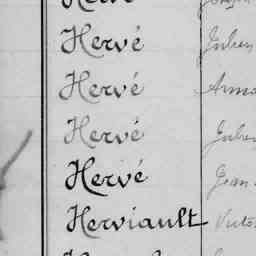 Hervé
Hervé Julien
Hervé
Hervé Julien
Hervé Jean
Herviault